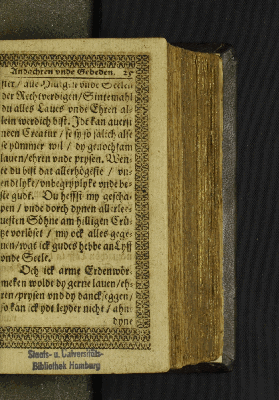 Andachten vnde Gebeden. 25
der Rechtverdigen/Sintemahl
du alles Laues vnde Ehren al-
lein werdich bist. Jdt kan auerst
neen Creatur / se sy so salich alse
se yümmer wil / dy genochsam
lauen/ehren vnde prysen. Wen-
te du bist dat allerhögeste / vn-
endtlyke/vnbegryplyke vnde be-
ste gudt. Du heffst my gescha-
pen / vnde dorch dynen allerle-
uesten Söhne am hilligen Crü-
tze vorlöset / my ock alles gege-
uen/wat ick gudes hebbe an Lyff
vnde Seele.
Och ick arme Erdenwör-
meken woldt dy gerne lauen/eh-
ren/prysen vnd dy danckseggen/
so kan ick ydt leyder nicht / ahn
dyne
Staats- u. Universitäts-
Bibliothek Hamburg